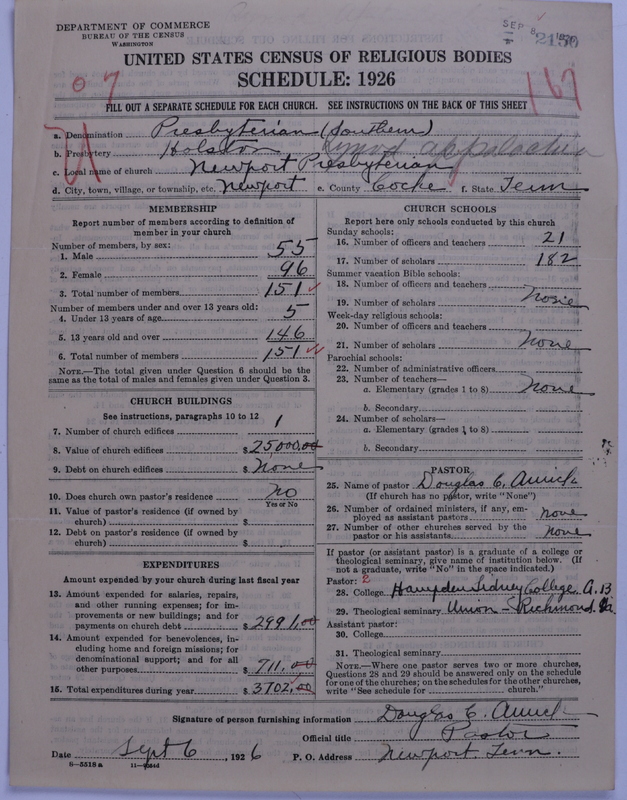 DEPARTMENT OF COMMERCE
BUREAU OF THE CENSUS
WASHINGTON
SEP 8
2150
UNITED STATES CENSUS OF RELIGIOUS BODIES
SCHEDULE: 1926
07
167
FILL OUT A SEPARATE SCHEDULE FOR EACH CHURCH. SEE INSTRUCTIONS ON THE BACK OF THIS SHEET
a. Denomination Presbyterian (Southern)
b. Presbytery Holston Synod Appalachia
c. Local name of church Newport Presbyterian
d. City, town, village, or township, etc. Newport e. County Cocke f. State Tenn
MEMBERSHIP
Report number of members according to definition of
member in your church
Number of members, by sex:
1. Male 55
2. Female 96
3. Total number of members 151
Number of members under and over 13 years old:
4. Under 13 years of age 5
5. 13 years old and over 146
6. Total number of members 151
NOTE.—The total given under Question 6 should be the
same as the total of males and females given under Question 3.
CHURCH BUILDINGS
See instructions, paragraphs 10 to 12
7. Number of church edifices 1
8. Value of church edifices $25000.00
9. Debt on church edifices $None
10. Does church own pastor's residence No
Yes or No
11. Value of pastor's residence (if owned by
church) $
12. Debt on pastor's residence (if owned by
church) $
EXPENDITURES
Amount expended by your church during last fiscal year
13. Amount expended for salaries, repairs,
and other running expenses; for im-
provements or new buildings; and for
payments on church debt $2991.00
14. Amount expended for benevolences, in-
cluding home and foreign missions; for
denominational support; and for all
other purposes $711.00
15. Total expenditures during year $3702.00
CHURCH SCHOOLS
Report here only schools conducted by this church
Sunday schools:
16. Number of officers and teachers 21
17. Number of scholars 182
Summer vacation Bible schools:
18. Number of officers and teachers
19. Number of scholars None
Week-day religious schools:
20. Number of officers and teachers
21. Number of scholars None
Parochial schools:
22. Number of administrative officers
23. Number of teachers—
a. Elementary (grades 1 to 8) None
b. Secondary
24. Number of scholars—
a. Elementary (grades 1 to 8)
b. Secondary
PASTOR
25. Name of pastor Douglas C. Amick
(If church has no pastor, write "None")
26. Number of ordained ministers, if any, em-
ployed as assistant pastors none
27. Number of other churches served by the
pastor or his assistants none
If pastor (or assistant pastor) is a graduate of a college or
theological seminary, give name of institution below. (If
not a graduate, write "No" in the space indicated.)
Pastor: 2
28. College Hampden Sidney College A.B
29. Theological seminary Union - Richmond Va
Assistant pastor:
30. College
31. Theological seminary
NOTE.—Where one pastor serves two or more churches,
Questions 28 and 29 should be answered only on the schedule
for one of the churches; on the schedules for the other churches,
write "See schedule for church."
Signature of person furnishing information Douglas C. Amick
Official title Pastor
Date Sept 6, 1926 P. O. Address Newport Tenn.
8—5518a